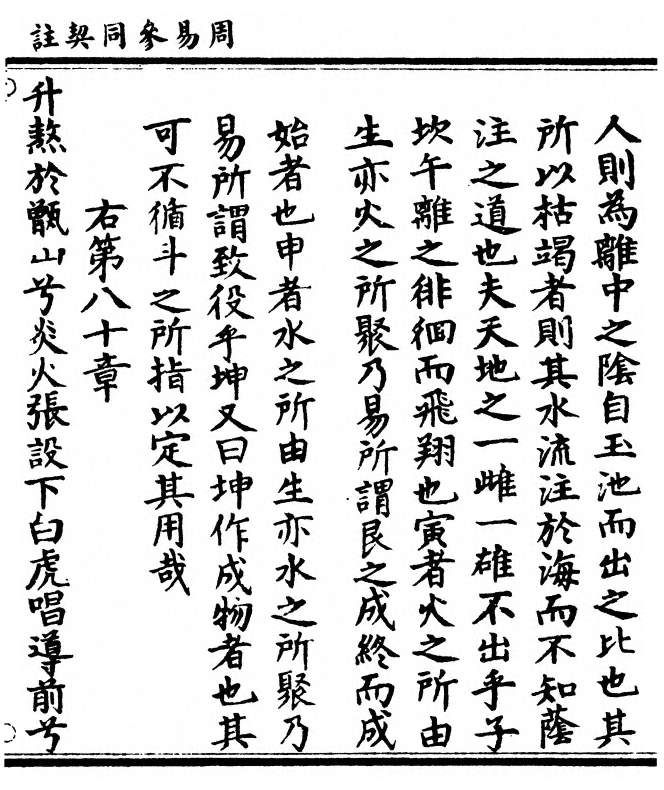 周易參同契註
人則為離中之陰自玉池而出之比也其
所以枯竭者則其水流注於海而不知蔭
注之道也夫天地之一雌一雄不出乎子
坎午離之徘徊而飛翔也寅者火之所由
生亦火之所聚乃易所謂艮之成終而成
始者也申者水之所由生亦水之所聚乃
易所謂致役乎坤又曰坤作成物者也其
可不循斗之所指以定其用哉
右第八十章
升熬於甑山兮炎火張設下白虎唱導前兮